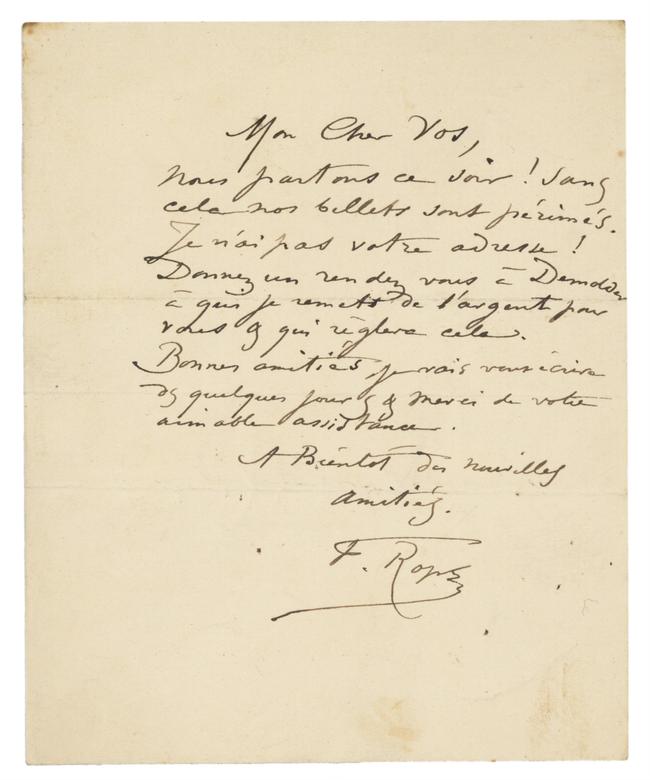 Mon Cher Vos,
nous partons ce soir ! Sans
cela nos billets sont périmés.
Je n'ai pas votre adresse !
Donnez un rendez vous à Demolder
à qui je remets de l'argent pour
vous & qui règlera cela.
Bonnes amitiés, je vais vous écrire
ds quelques jours & merci de votre
aimable assistance.
A Bientôt des nouvelles
amitiés.
F. Rops